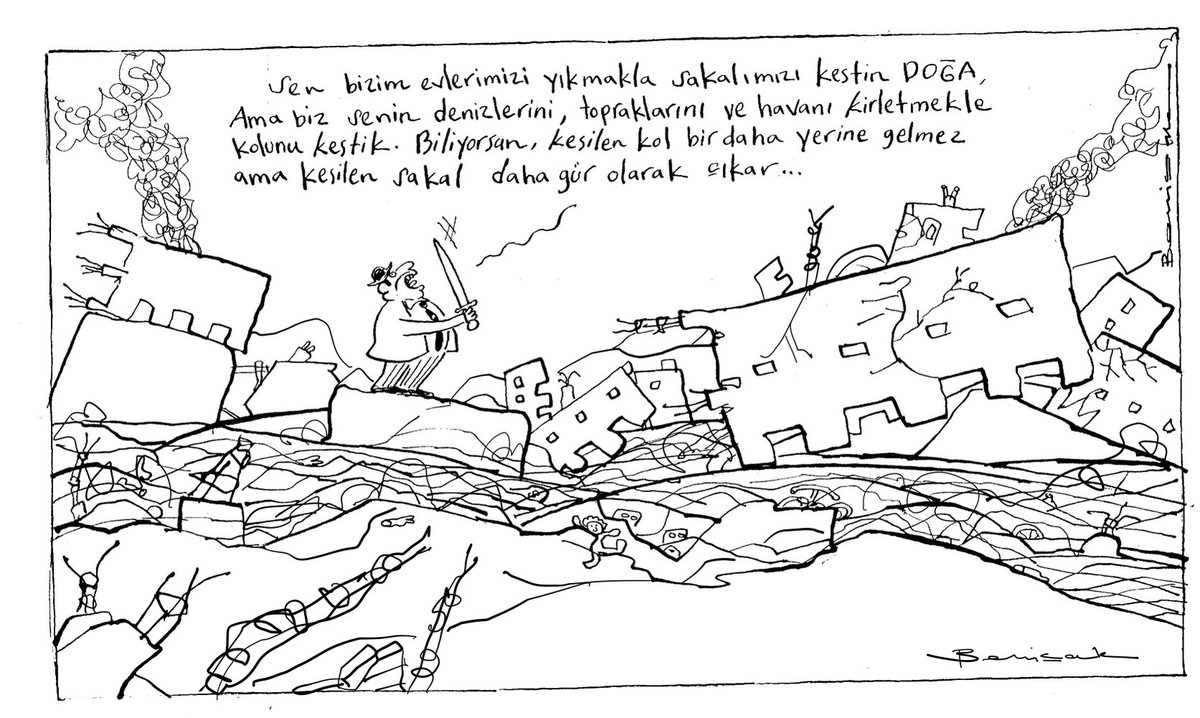 Sen bizim evlerimizi yıkmakla sakalımızı kestin DOĞA,
Ama biz senin denizlerini, topraklarını ve havanı kirletmekle
kolunu kestik. Biliyorsan, kesilen kol bir daha yerine gelmez
ama kesilen sakal daha gür olarak çıkar...
Benisak
Benisak